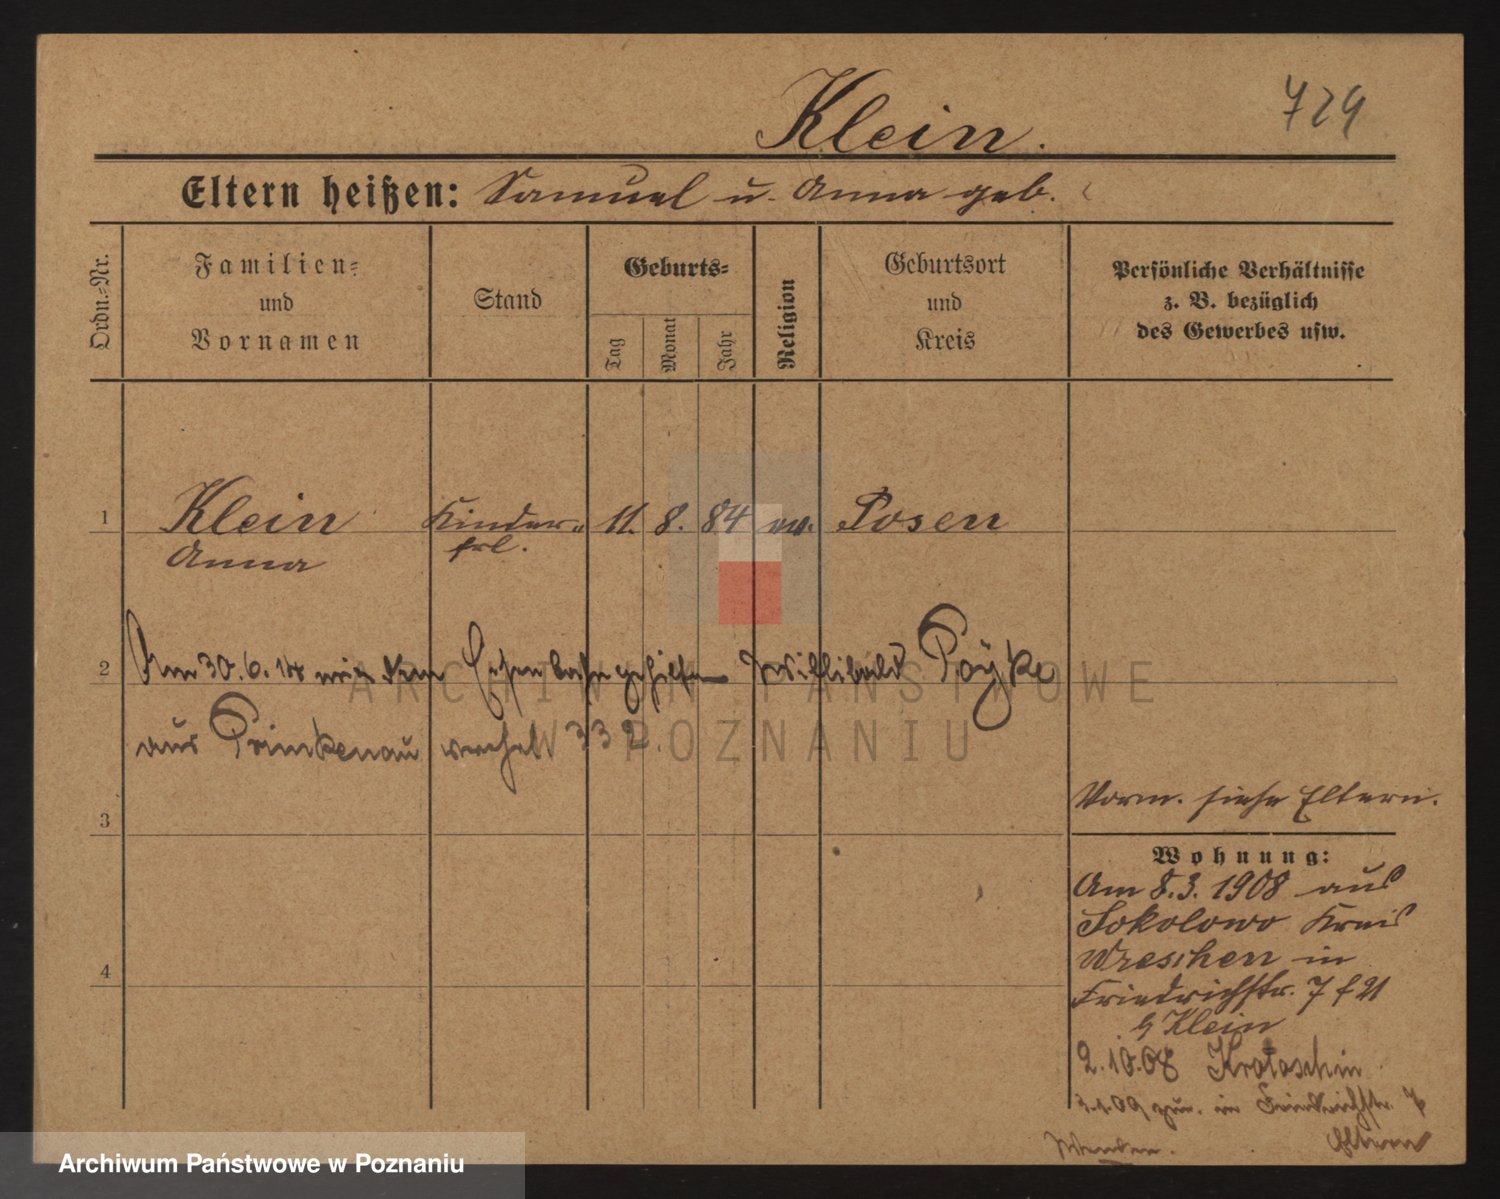 729
Klein.
Eltern heißen: Samuel u. Anna geb.
Ordn.-Nr.
Familien- und Vornamen
Stand
Geburts-
Tag
Monat
Jahr
Religion
Geburtsort und Kreis
Persönliche Verhältnisse z. B. bezüglich des Gewerbes usw.
1 Klein Kinder- 11. 8. 84 ev. Posen
Anna frl.
2 Am 30.6.14 mit dem Eisenbahngehilfen Willibald
aus Prinkenau verehel 332.
ARCHIWUM PAŃSTWOWE
W POZNANIU
Vorm. siehe Eltern.
3
Wohnung:
Am 8.3.1908 aus
Sokolowo Kreis
Wreschen in
Friedrichstr. 7
b/ Klein
4
2.10.08 Krotoschin
3.1.09 zur. in Friedrichstr. 7
Eltern
Wenden.
Archiwum Państwowe w Poznaniu